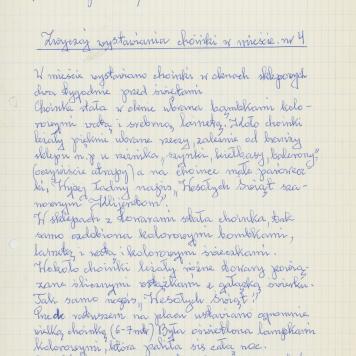 Zwyczaj wystawiania choinki w mieście. nr 4
W mieście wystawiano choinki w oknach sklepowych
dwa tygodnie przed świętami
Choinka stała w oknie ubrana bombkami kolo-
rowymi watą i srebrną lametą. Wkoło choinki
leżały pięknie ubrane rzeczy, zależnie od branży
sklepu n.p u rzeźnika, szynki, kiełbasy, bekony,
(oczywiście atrapy) a na choince małe parówecz
ki, Wyżej ładny napis „Wesołych Świąt sza-
nownym Klijentom".
W sklepach z towarami stała choinka, tak
samo ozdobiona kolorowymi bombkami,
lametą i watą i kolorowymi świeczkami.
Wokoło choinki leżały różne towary przewią
zane ślicznymi wstążkami z gałązką świerku.
Tak samo napis, „Wesołych Świąt"!
Przed ratuszem na placu ustawiano ogromnie
wielką choinkę (6-7 mtr) Była oświetlona lampkami
kolorowymi, która paliła się całą noc.